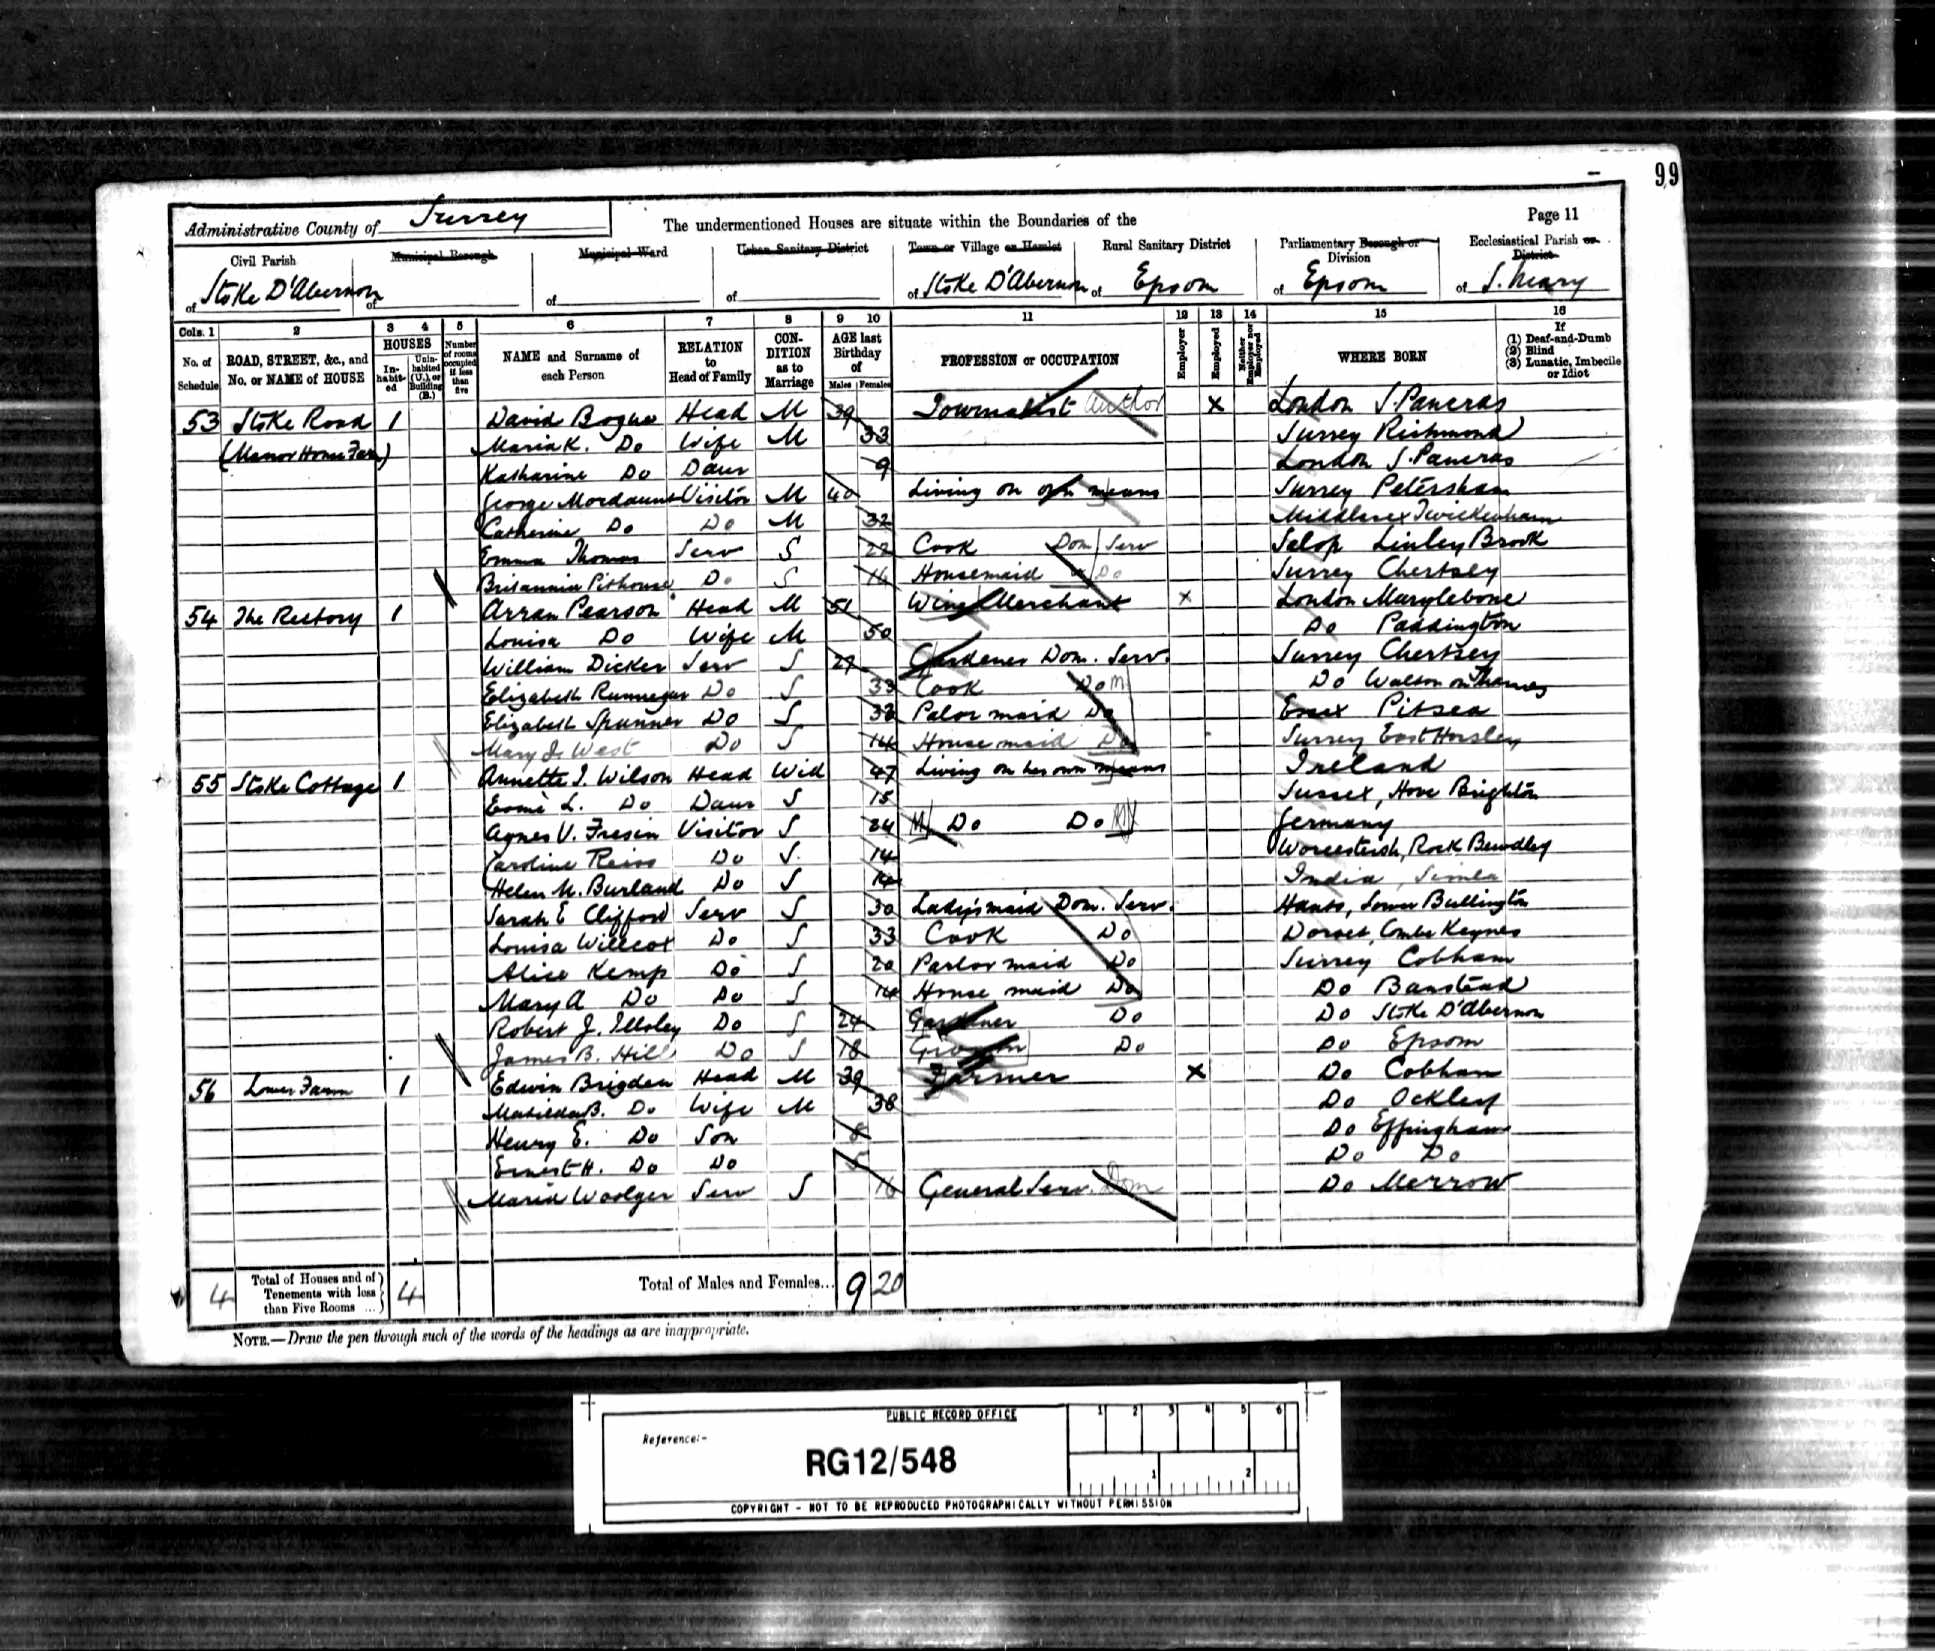 99
Administrative County of Surrey The undermentioned Houses are situate within the Boundaries of the Page 11
Civil Parish Municipal Borough Municipal Ward Urban Sanitary District Town or Village or Hamlet Rural Sanitary District Parliamentary Borough or Division Ecclesiastical Parish or District
of Stoke D'Abernon of of of of Stoke D'Abernon of Epsom of Epsom of S. Mary
Cols. 1 2 3 4 5 6 7 8 9 10 11 12 13 14 15 16
No. of Schedule ROAD, STREET, &c., and No. or NAME of HOUSE HOUSES Inhabited Uninhabited (U.), or Building (B.) Number of rooms occupied if less than five NAME and Surname of each Person RELATION to Head of Family CONDITION as to Marriage AGE last Birthday of Males Females PROFESSION or OCCUPATION Employer Employed Neither Employer nor Employed WHERE BORN If (1) Deaf-and-Dumb (2) Blind (3) Lunatic, Imbecile or Idiot
53 Stoke Road 1 David Bogue Head M 39 Journalist Author x London S. Pancras
(Manor House Farm) Maria K. Do Wife M 33 Surrey Richmond
Katharine Do Daur 9 London S. Pancras
George Mordaunt Visitor M 40 Living on own means Surrey Petersham
Catherine Do Do M 32 Middlesex Twickenham
Emma Thomas Serv S 22 Cook Dom Serv Salop Linley Brook
Britannia Pithouse Do S 16 Housemaid Do Surrey Chertsey
54 The Rectory 1 Arran Pearson Head M 51 Wine Merchant x London Marylebone
Louisa Do Wife M 50 Do Paddington
William Dicker Serv S 27 Gardener Dom. Serv. Surrey Chertsey
Elizabeth Do S 33 Cook Do M Do Walton on Thames
Elizabeth Spunner Do S 33 Palor maid Do Essex Pitsea
Mary J. West Do S 14 House maid Do Surrey East Horsley
55 Stoke Cottage 1 Annette I. Wilson Head Wid 47 Living on her own means Ireland
Esmè L. Do Daur S 15 Sussex, Hove Brighton
Agnes V. Fresin Visitor S 24 Do Do Germany
Caroline Reiss Do S. 14 Worcestersh, Rock Bewdley
Helen M. Burland Do S 14 India, Simla
Sarah E Clifford Serv S 30 Ladysmaid Dom. Serv. Hants, Lower Bullington
Louisa Willcox Do S 33 Cook Do Dorset, Combe Keynes
Alice Kemp Do S 20 Parlor maid Do Surrey Cobham
Mary A Do Do S 14 House maid Do Do Banstead
Robert J. Illsley Do S 24 Gardener Do Do Stoke D'Abernon
James B. Hill Do S 18 Groom Do Do Epsom
56 Lower Farm 1 Edwin Brigden Head M 39 Farmer x Do Cobham
Matilda B. Do Wife M 38 Do Ockley
Henry E. Do Son 8 Do Effingham
Ernest H. Do Do 5 Do Do
Maria Woolger Serv S 16 General Serv. Dom Do Merrow
4 Total of Houses and of Tenements with less than Five Rooms ... 4 Total of Males and Females... 9 20
NOTE.—Draw the pen through such of the words of the headings as are inappropriate.
PUBLIC RECORD OFFICE
1 2 3 4 5 6
Reference:-
RG12/548
1 2
COPYRIGHT - NOT TO BE REPRODUCED PHOTOGRAPHICALLY WITHOUT PERMISSION